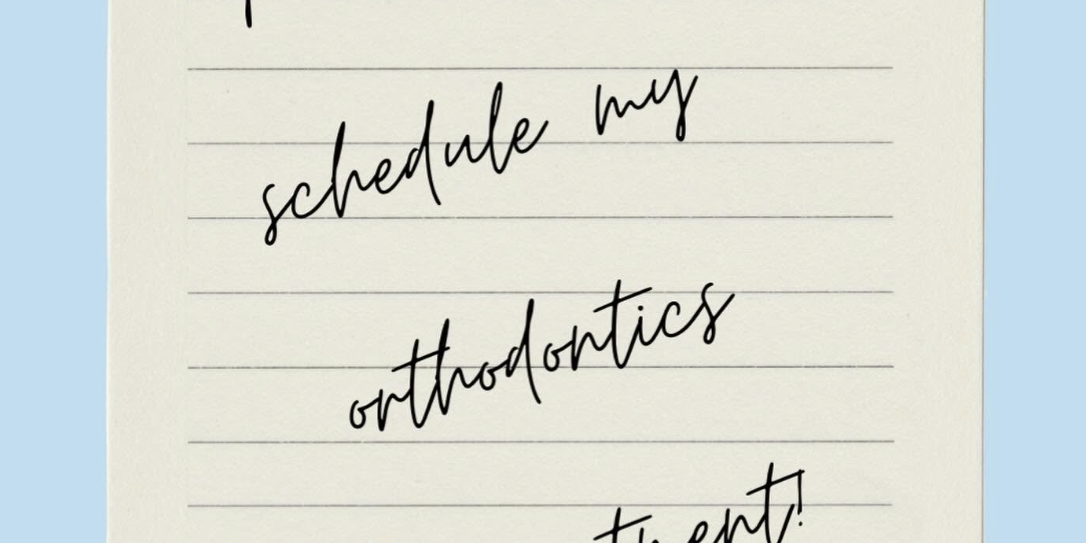 schedule my
orthodontics